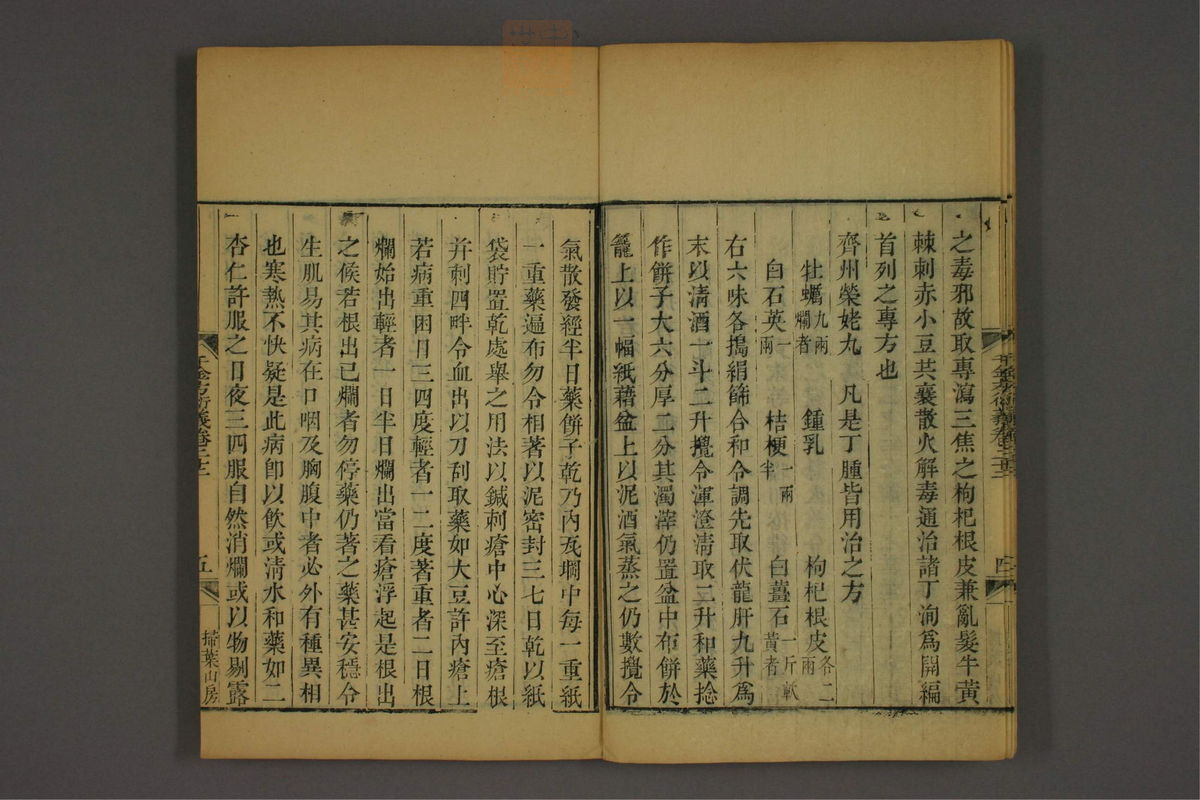 之毒邪故取專瀉三焦之枸杞根皮兼亂髮牛黃
棘刺赤小豆共襄散火解毒通治諸丁洵爲開福
首列之專方也
齊州榮姥丸　凡是丁腫皆用治之方
牡蠣九兩爛者　鍾乳　枸杞根皮各二兩
白石英一兩　桔梗一兩半　白薑石一斤軟黃者
右六味各搗絹篩合和令調先取伏龍肝九升爲
末以清酒一斗二升攪令渾澄清取二升和藥捻
作餅子大六分厚二分其濁滓仍置盆中布餅於
籠上以一幅紙藉盆上以泥酒氣蒸之仍數攪令
氣散發經半日藥餅子乾乃內瓦㼚中每一重紙
一重藥遍布勿令相著以泥密封三七日乾以紙
袋貯置乾處舉之用法以鍼刺瘡中心深至瘡根
并刺四畔令血出以刀刮取藥如大豆許內瘡上
若病重困日三四度輕者一二度著重者二日根
爛始出輕者一日半日爛出當看瘡浮起是根出
之候若根出已爛者勿停藥仍著之藥甚安穩令
生肌易其病在口咽及胸腹中者必外有種異相
也寒熱不快疑是此病卽以飲或清水和藥如二
杏仁許服之日夜三四服自然消爛或以物剔露
千金方衍義卷二十二
四
千金方衍義卷二十二
五
掃葉山房